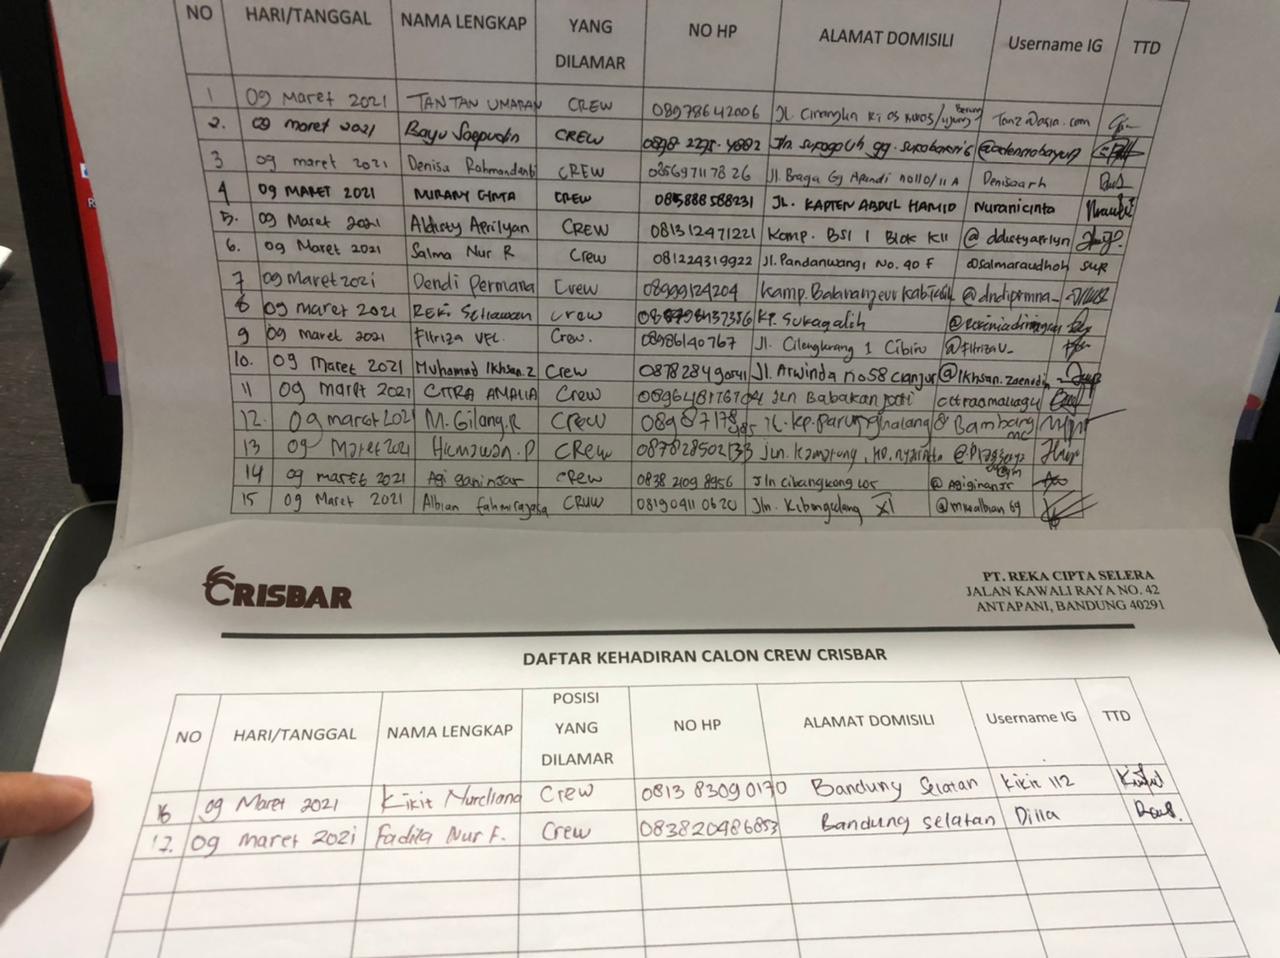 NO HARI/TANGGAL NAMA LENGKAP YANG DILAMAR NO HP ALAMAT DOMISILI Username IG TTD
1 09 Maret 2021 TANTAN UMARAN CREW 08978642006 Jl. Cinangka Tanz@asia.com
2. 09 maret 2021 Bayu Saepudin CREW Jln sukagalih gg. sukabarris
3 09 maret 2021 Denisa CREW 085697117826 Jl. Braga Gg Apandi no110/11A Denisarh
4 09 MARET 2021 CREW 085888588231 JL. KAPTEN ABDUL HAMID Nuranicinta
5. 09 Maret 2021 Aldisty Aprilyan CREW 081312471221 Komp. BSI 1 Blok KII
6. 09 Maret 2021 Salma Nur R Crew 081224319922 Jl. Pandanwangi No. 40 F @salmaraudhoh SNR
7 09 Maret 2021 Dendi Permana Crew 08999124204 Kamp. @dndiprmna_
8 09 maret 2021 REKi Setiawan Crew Kp. Sukagalih
9 09 maret 2021 Fitriza Crew. 08986140767 Jl. Cilengkrang 1 Cibiru @FitrizaV_
10. 09 Maret 2021 Muhamad Ikhsan.Z Crew Jl. Arwinda no58 Cianjur
11 09 maret 2021 CITRA AMALIA Crew Jln Babakan
12. 09 maret 2021 M. Gilang.R Crew Jl. kp.
13 09 Maret 2021 CREW 087828502133 jln.
14 09 maret 2021 Agi Ganinjar Crew 0838 2109 8956 Jln cibangkong
15 09 Maret 2021 Albian CREW 081904110620 Jln. XI
CRISBAR
PT. REKA CIPTA SELERA
JALAN KAWALI RAYA NO. 42
ANTAPANI, BANDUNG 40291
DAFTAR KEHADIRAN CALON CREW CRISBAR
NO HARI/TANGGAL NAMA LENGKAP POSISI YANG DILAMAR NO HP ALAMAT DOMISILI Username IG TTD
16 09 Maret 2021 Kikit Nurdiana Crew 0813 8309 0170 Bandung Selatan Kikit 112
17. 09 maret 2021 Fadila Nur F. Crew 083820486853 Bandung selatan Dilla